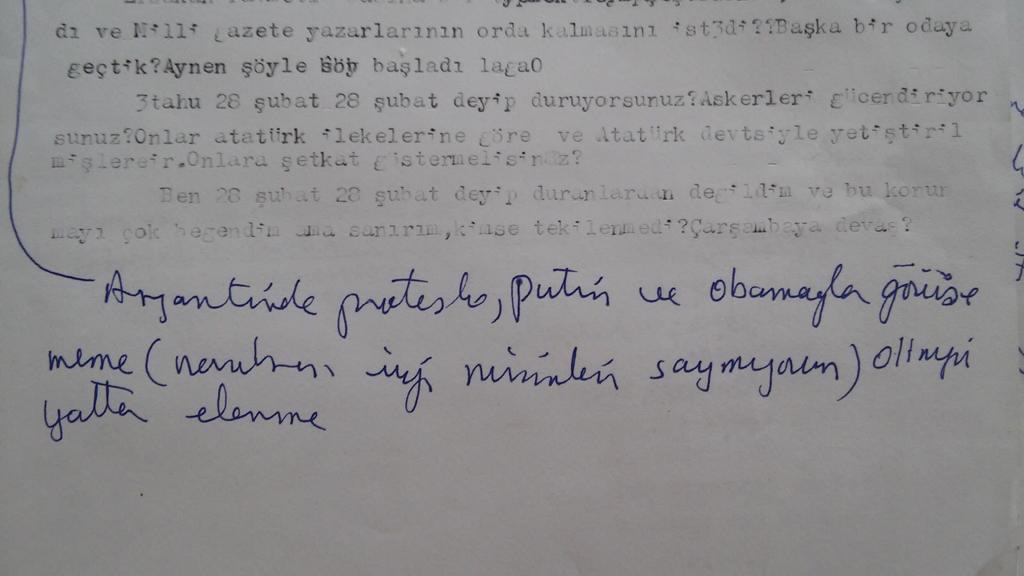 dı ve Milli gazete yazarlarının orda kalmasını ist3di??Başka bir odaya
geçtik?Aynen şöyle başladı lagaO
3tahu 28 şubat 28 şubat deyip duruyorsunuz?Askerleri gücendiriyor
sunuz?Onlar atatürk ilekelerine göre ve Atatürk devtsiyle yetiştiril
mişlereir.Onlara şetkat gistermelisinüz?
Ben 28 şubat 28 şubat deyip duranlardan degildim ve bu konur
mayı çok begendim ama sanırım,kimse tekilenmedi?Çarşambaya devaş?
Arjantinde protesto, Putin ve obamayla görüşe
meme ( saymıyorum) olimpi
yatta elenme